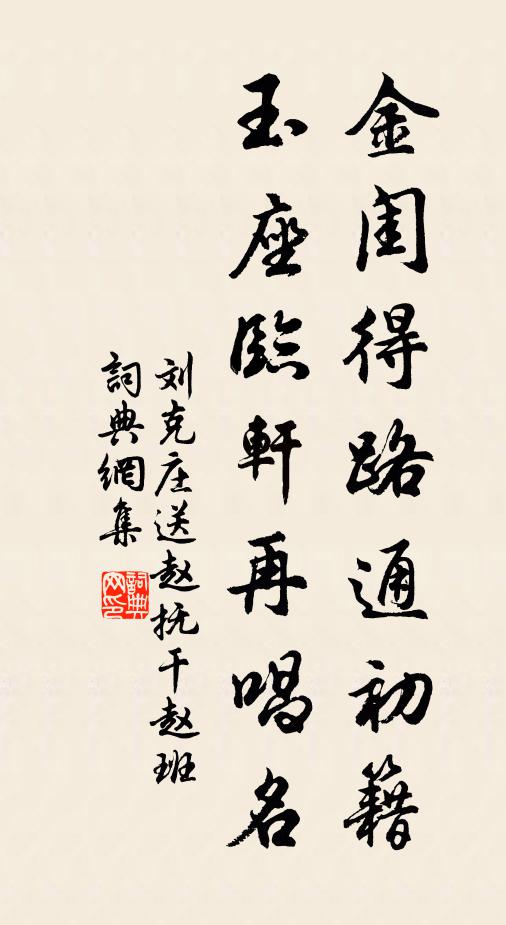 金閨得路通初籍
玉座臨軒再唱名
刘克庄送赵抚干赵班
詞典網集
詞典网印